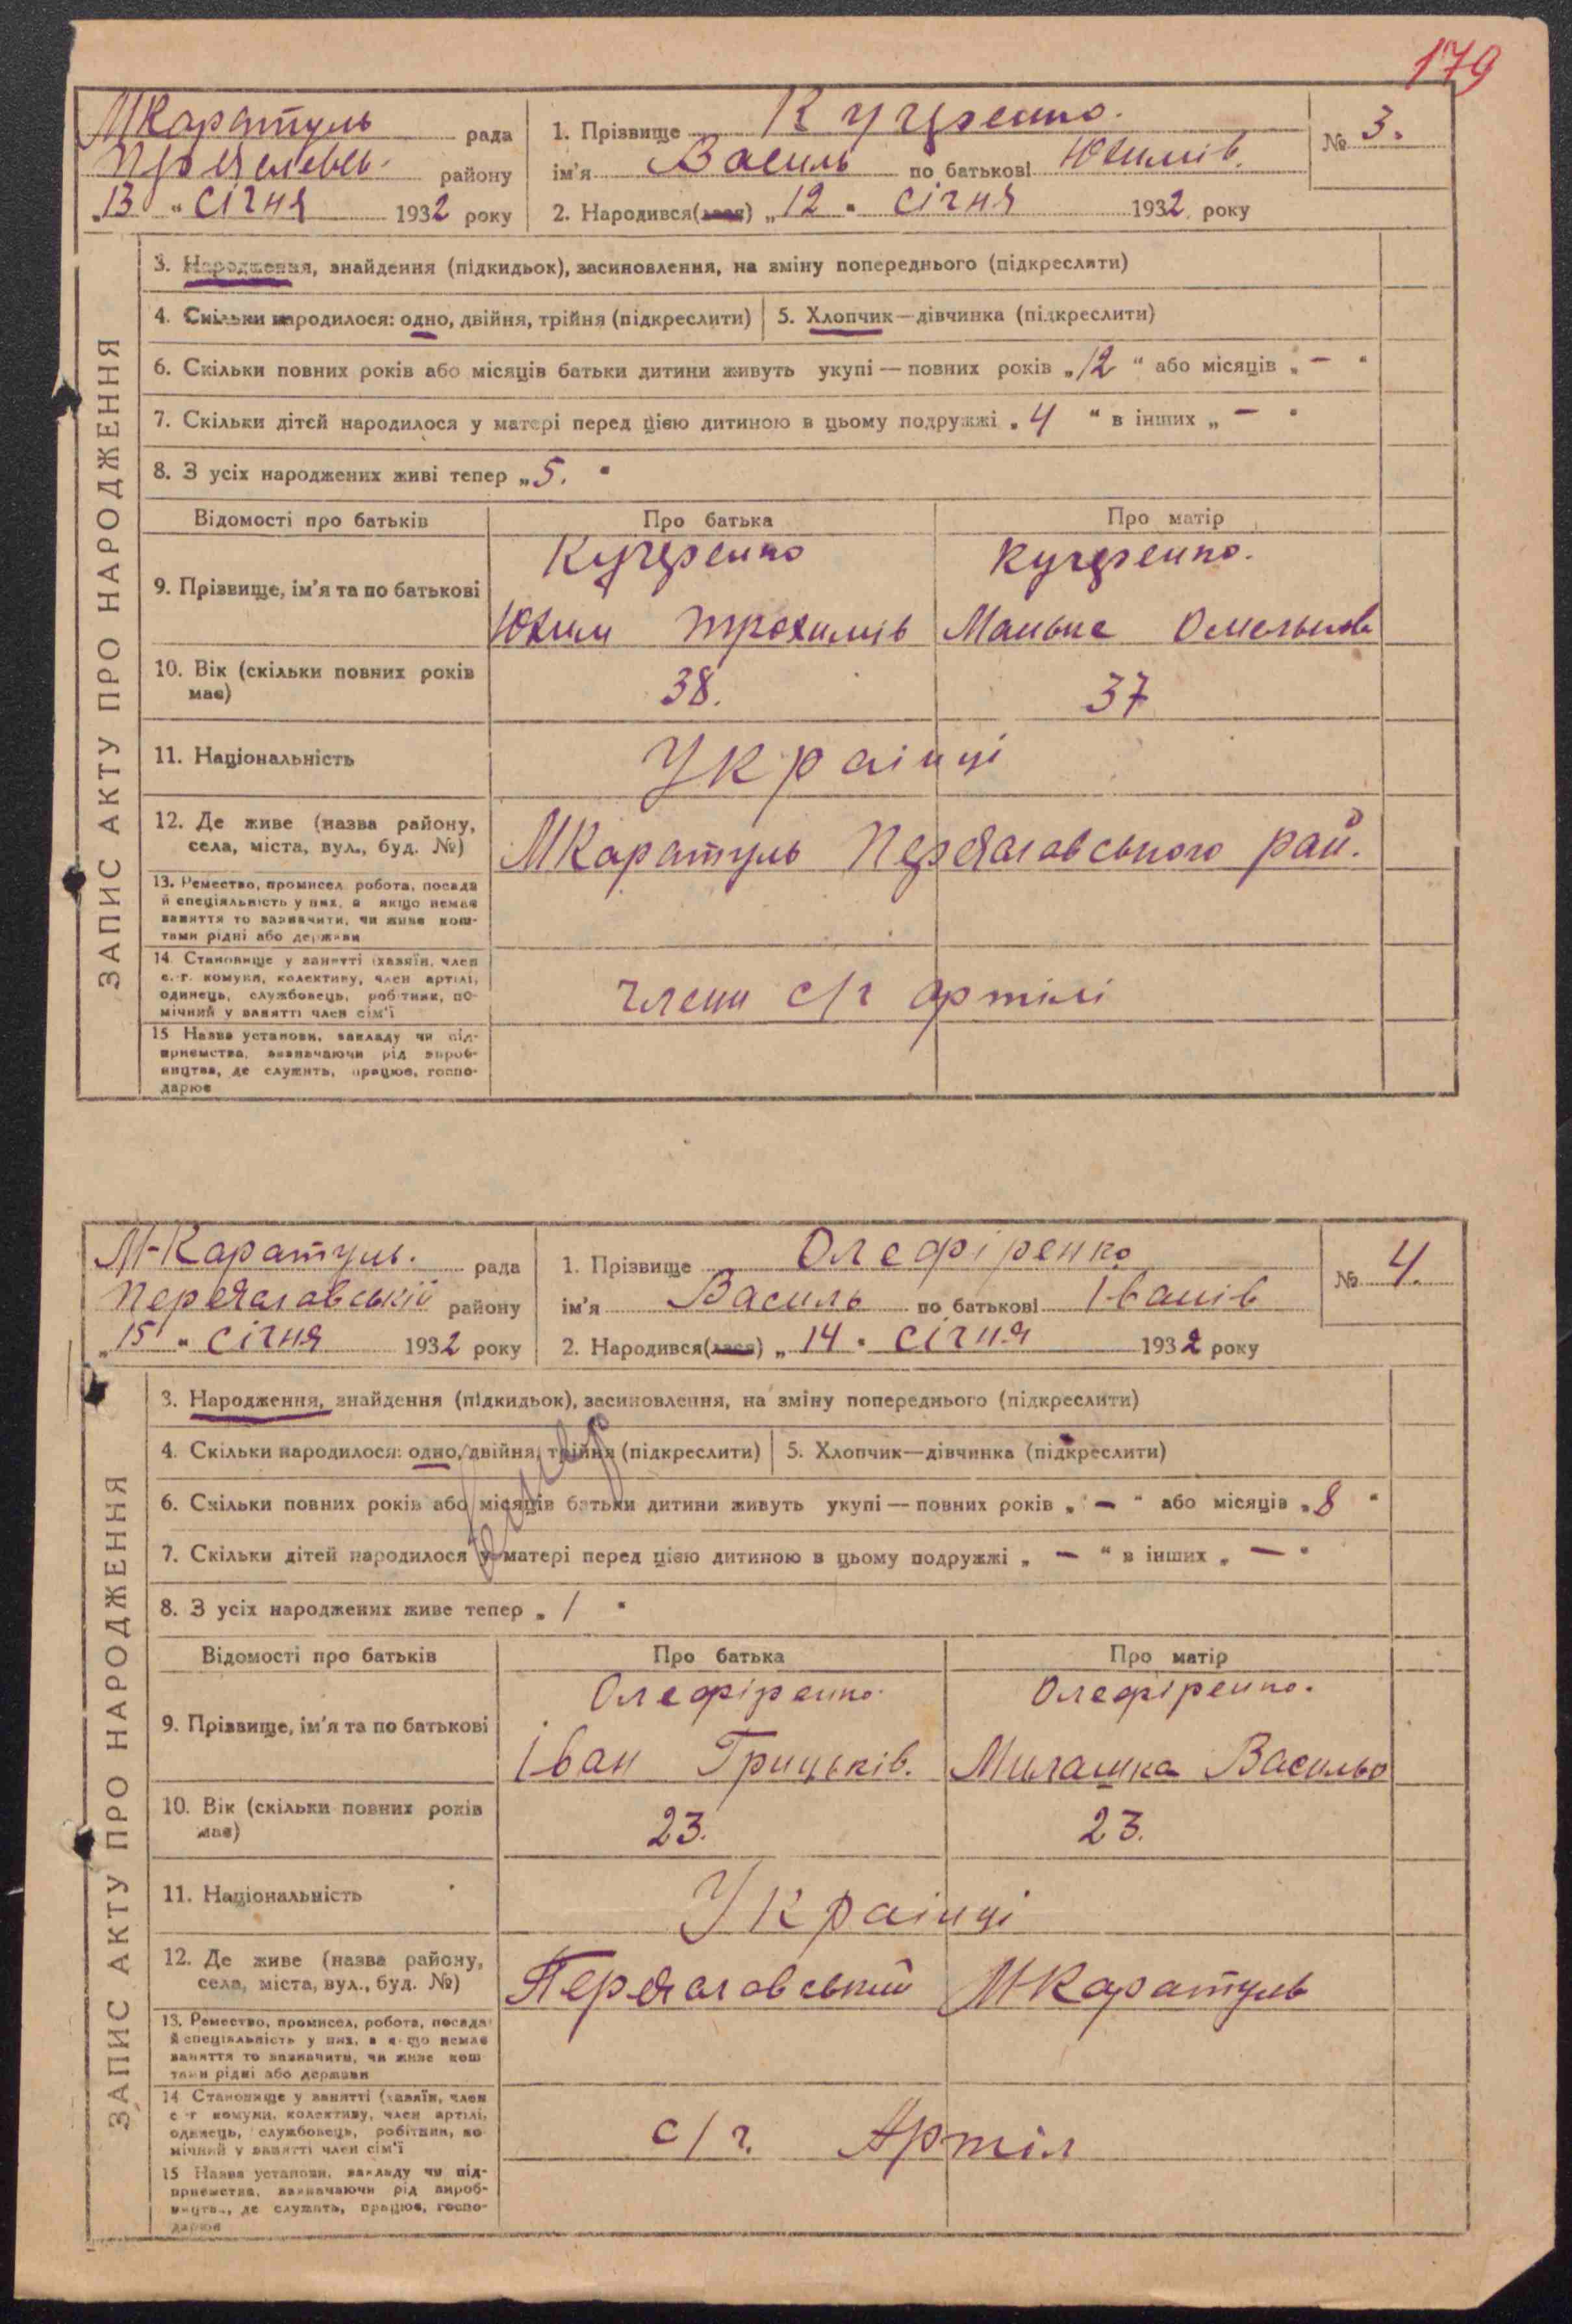 179
МКаратуль рада
району
„13“ Січня 1932 року
1. Прізвище Кучеренко.
ім'я Василь по батькові Юхимів.
№ 3.
2. Народився(лася) „12“ Січня 1932 року
ЗАПИС АКТУ ПРО НАРОДЖЕННЯ
3. Народження, знайдення (підкидьок), засиновлення, на зміну попереднього (підкреслити)
4. Скільки народилося: одно, двійня, трійня (підкреслити) 5. Хлопчик—дівчинка (підкреслити)
6. Скільки повних років або місяців батьки дитини живуть укупі — повних років „12“ або місяців „—“
7. Скільки дітей народилося у матері перед цією дитиною в цьому подружжі „4“ в інших „—“
8. З усіх народжених живі тепер „5.“
Відомості про батьків Про батька Про матір
9. Прізвище, ім'я та по батькові
Кучеренко Кучеренко.
Юхим Трохимів Манька Омелькова
10. Вік (скільки повних років має)
38. 37
11. Національність Українці
12. Де живе (назва району, села, міста, вул., буд. №)
МКаратуль Переяславського рай.
13. Ремество, промисел, робота, посада
й спеціяльність у них, а якщо немає
заняття то зазначити, чи живе кош-
тами рідні або держави
14. Становище у занятті (хазяїн, член
с.-г. комуни, колективу, член артілі,
одинець, службовець, робітник, по-
мічний у занятті член сім'ї
члени с/г артілі
15 Назва установи, закладу чи під-
приємства, зазначаючи рід вироб-
ництва, де служить, працює, госпо-
дарює
М-Каратуль. рада
Переяславській району
„15“ Січня 1932 року
1. Прізвище Олефіренко
ім'я Василь по батькові Іванів
№ 4.
2. Народився(лася) „14“ Січня 1932 року
ЗАПИС АКТУ ПРО НАРОДЖЕННЯ
3. Народження, знайдення (підкидьок), засиновлення, на зміну попереднього (підкреслити)
4. Скільки народилося: одно, двійня, трійня (підкреслити) 5. Хлопчик—дівчинка (підкреслити)
6. Скільки повних років або місяців батьки дитини живуть укупі — повних років „—“ або місяців „8“
7. Скільки дітей народилося у матері перед цією дитиною в цьому подружжі „—“ в інших „—“
8. З усіх народжених живе тепер „1“
помер
Відомості про батьків Про батька Про матір
9. Прізвище, ім'я та по батькові
Олефіренко. Олефіренко.
Іван Грицьків. Милашка Васильо
10. Вік (скільки повних років має)
23. 23.
11. Національність Українці
12. Де живе (назва району, села, міста, вул., буд. №)
Переяславський МКаратуль
13. Ремество, промисел, робота, посада
й спеціяльність у них, а якщо немає
заняття то зазначити, чи живе кош
тами рідні або держави
14 Становище у занятті (хазяїн, член
с-г комуни, колективу, член артілі,
одинець, службовець, робітник, по
мічний у занятті член сім'ї
с/г. Артіл
15 Назва установи, закладу чи під-
приємства, зазначаючи рід вироб-
ництва, де служить, працює, госпо-
дарює